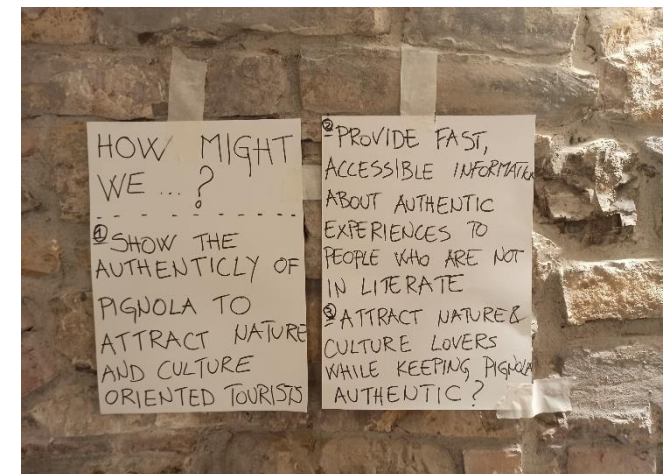 HOW MIGHT
WE ... ?
① SHOW THE
AUTHENTICLY OF
PIGNOLA TO
ATTRACT NATURE
AND CULTURE
ORIENTED TOURISTS
② PROVIDE FAST,
ACCESSIBLE INFORMATION
ABOUT AUTHENTIC
EXPERIENCES TO
PEOPLE WHO ARE NOT
IN LITERATE
③ ATTRACT NATURE &
CULTURE LOVERS
WHILE KEEPING PIGNOLA
AUTHENTIC?